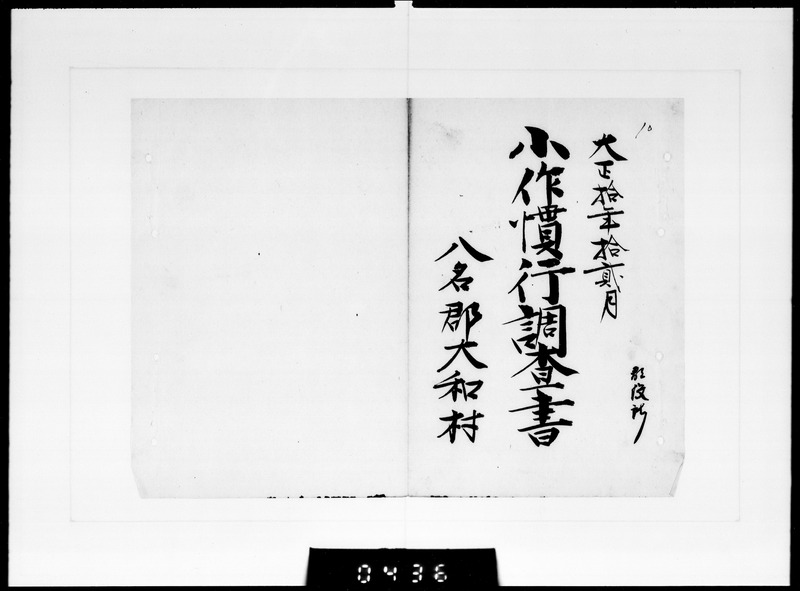 10
大正拾年拾貳月
小作慣行調査書
八名郡大和村
郡役所
0436